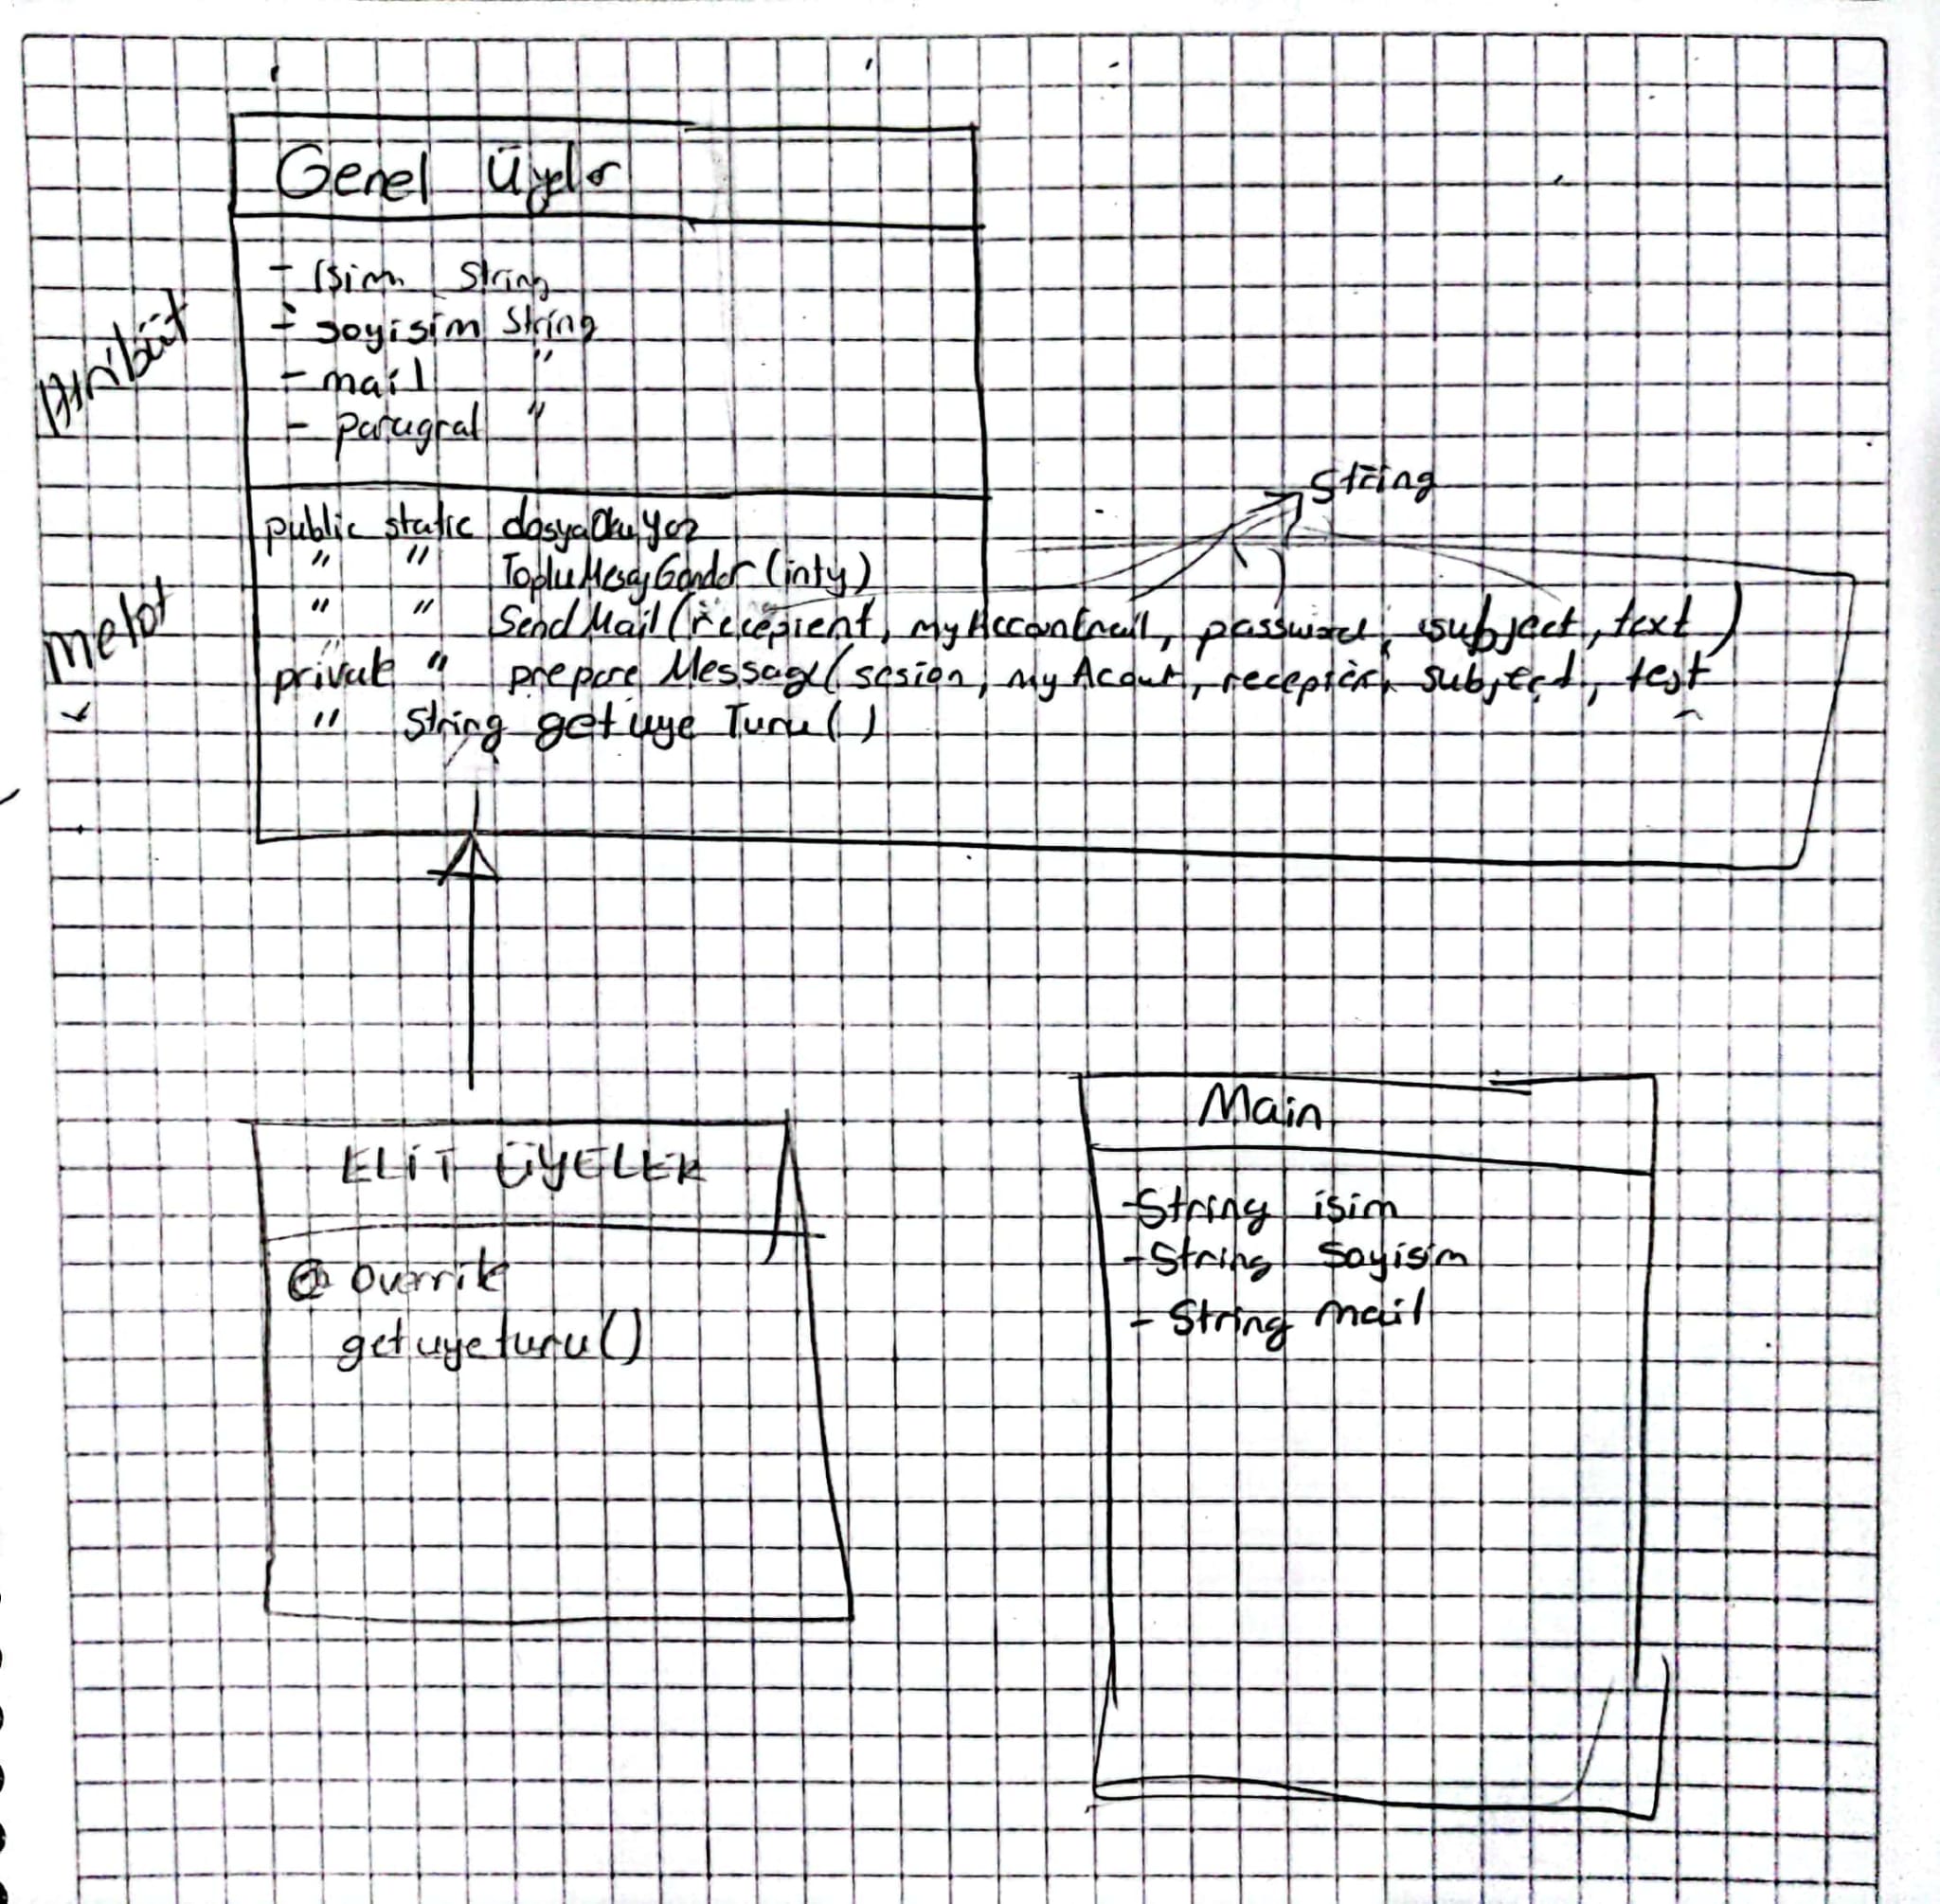 Genel Üyeler
- İsim String
- soyisim String
- mail "
- paragraf "
Atribüt
String
public static dosyaOkuyaz
" " TopluMesajGonder (inty)
" " SendMail (recepient, myAccountmail, password, subject, text)
private " prepare Message (sesion, myAcount, recepient, subject, test
" String getuye Turu ( )
Metot
ELİT ÜYELER
@ Override
getuyeturu()
Main
-String isim
-String Soyisim
- String mail